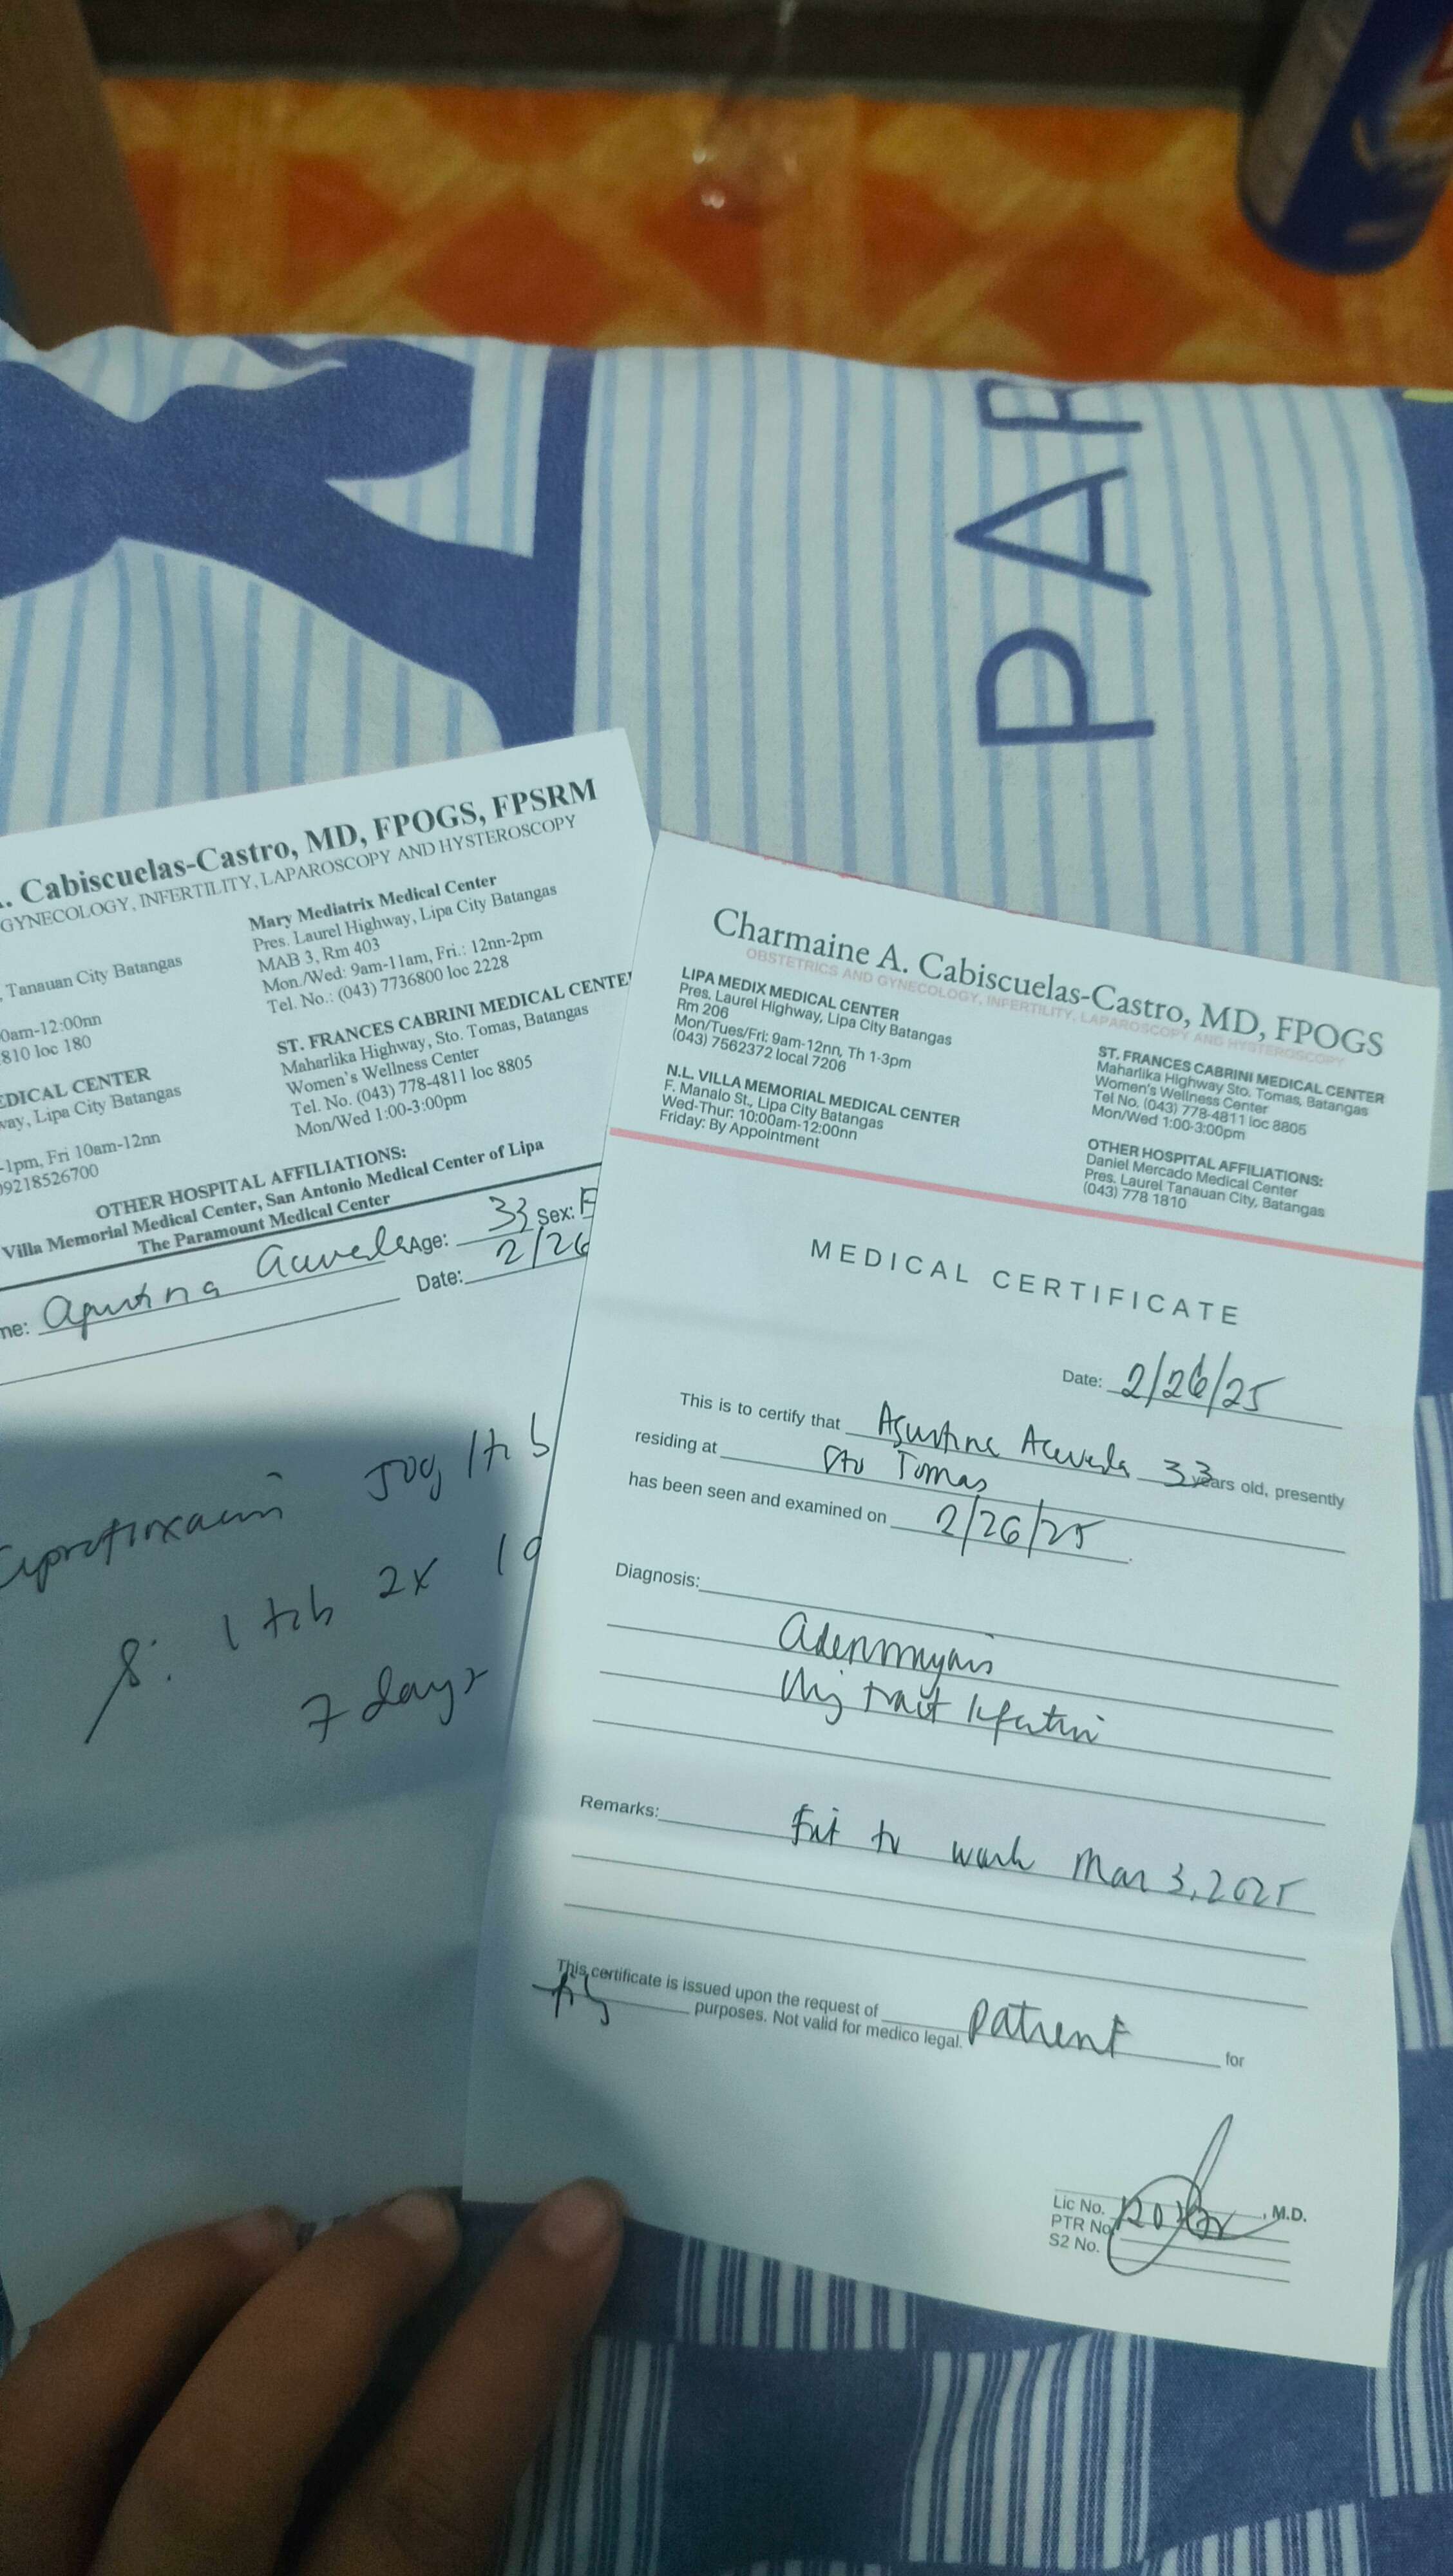 PAR
. Cabiscuelas-Castro, MD, FPOGS, FPSRM
GYNECOLOGY, INFERTILITY, LAPAROSCOPY AND HYSTEROSCOPY
, Tanauan City Batangas
0am-12:00nn
810 loc 180
EDICAL CENTER
way, Lipa City Batangas
-1pm, Fri 10am-12nn
09218526700
Mary Mediatrix Medical Center
Pres. Laurel Highway, Lipa City Batangas
MAB 3, Rm 403
Mon./Wed: 9am-11am, Fri.: 12nn-2pm
Tel. No.: (043) 7736800 loc 2228
ST. FRANCES CABRINI MEDICAL CENTE
Maharlika Highway, Sto. Tomas, Batangas
Women's Wellness Center
Tel. No. (043) 778-4811 loc 8805
Mon/Wed 1:00-3:00pm
OTHER HOSPITAL AFFILIATIONS:
Villa Memorial Medical Center, San Antonio Medical Center of Lipa
The Paramount Medical Center
me: Age: 33 Sex: F
Date: 2/26
S: 1 tab 2x 1d
7 days
Charmaine A. Cabiscuelas-Castro, MD, FPOGS
OBSTETRICS AND GYNECOLOGY, INFERTILITY, LAPAROSCOPY AND HYSTEROSCOPY
LIPA MEDIX MEDICAL CENTER
Pres. Laurel Highway, Lipa City Batangas
Rm 206
Mon/Tues/Fri: 9am-12nn, Th 1-3pm
(043) 7562372 local 7206
N.L. VILLA MEMORIAL MEDICAL CENTER
F. Manalo St., Lipa City Batangas
Wed-Thur: 10:00am-12:00nn
Friday: By Appointment
ST. FRANCES CABRINI MEDICAL CENTER
Maharlika Highway Sto. Tomas, Batangas
Women's Wellness Center
Tel No. (043) 778-4811 loc 8805
Mon/Wed 1:00-3:00pm
OTHER HOSPITAL AFFILIATIONS:
Daniel Mercado Medical Center
Pres. Laurel Tanauan City, Batangas
(043) 778 1810
MEDICAL CERTIFICATE
Date: 2/26/25
This is to certify that 33 years old, presently
residing at Sto Tomas
has been seen and examined on 2/26/25
Diagnosis:
Remarks: Fit to work Mar 3, 2025
This certificate is issued upon the request of patient for
purposes. Not valid for medico legal.
, M.D.
Lic No.
PTR No.
S2 No.